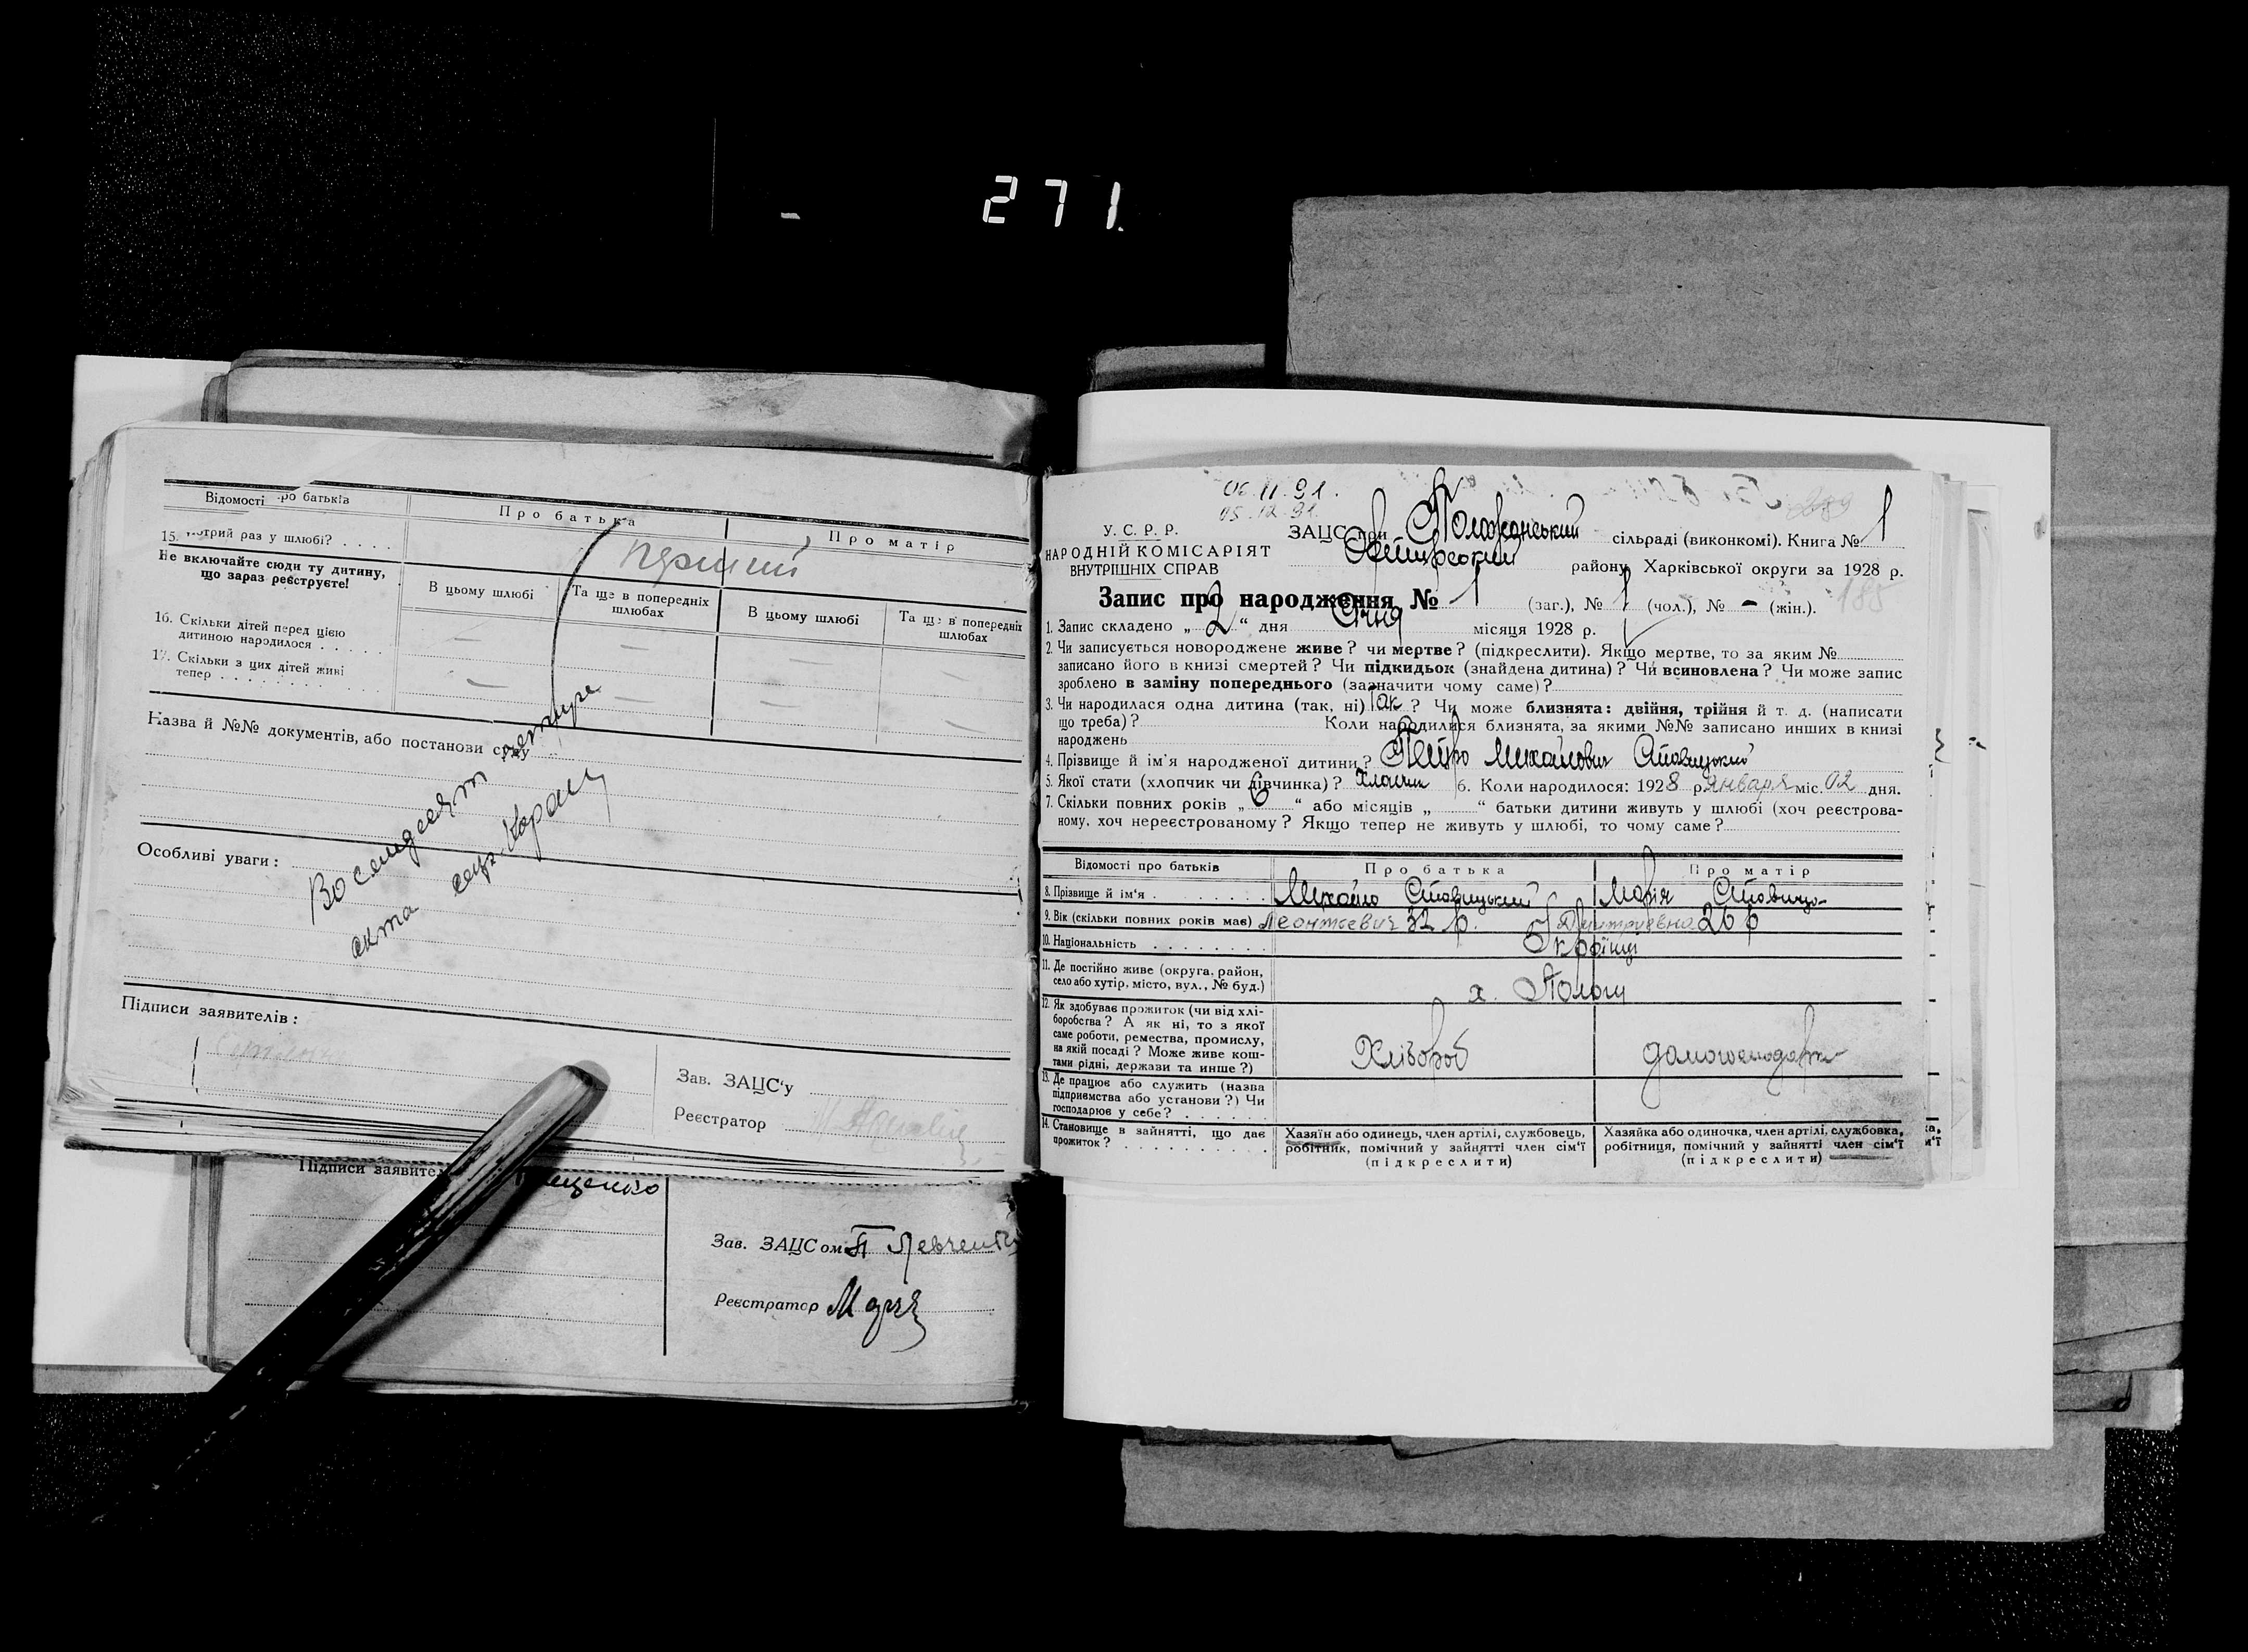 271.
Відомості про батьків
Про батька
Про матір
15. Котрий раз у шлюбі? . . . .
перший
Не включайте сюди ту дитину,
що зараз реєструєте!
В цьому шлюбі
Та ще в попередніх
шлюбах
В цьому шлюбі
Та ще в попередніх
шлюбах
16. Скільки дітей перед цією
дитиною народилося . . . . .
— — — —
17. Скільки з цих дітей живі
тепер . . . . . . . . . . .
— — — —
Назва й №№ документів, або постанови суду
Восемдесят четыре
акта
Особливі уваги:
Підписи заявителів:
Зав. ЗАЦС'у
Реєстратор
Підписи заявител
Зав. ЗАЦСом П Левченко
Реєстратор
06.11.91.
05.12.91.
289
У. С. Р. Р.
НАРОДНІЙ КОМІСАРІЯТ
ВНУТРІШНІХ СПРАВ
ЗАЦС при сільраді (виконкомі). Книга № 1
району Харківської округи за 1928 р.
185
Запис про народження № 1 (заг.), № 1 (чол.), № - (жін.).
1. Запис складено „ 2 “ дня Січня місяця 1928 р.
2. Чи записується новороджене живе? чи мертве? (підкреслити). Якщо мертве, то за яким №
записано його в книзі смертей? Чи підкидьок (знайдена дитина)? Чи всиновлена? Чи може запис
зроблено в заміну попереднього (зазначити чому саме)?
3. Чи народилася одна дитина (так, ні) Так? Чи може близнята: двійня, трійня й т. д. (написати
що треба)? Коли народилися близнята, за якими №№ записано инших в книзі
народжень
4. Прізвище й ім'я народженої дитини? Петро Михайлович Ставицький
5. Якої стати (хлопчик чи дівчинка)? Хлопчик 6. Коли народилося: 1928 р. января міс. 02 дня.
7. Скільки повних років „ 6 “ або місяців „ “ батьки дитини живуть у шлюбі (хоч реєстрова-
ному, хоч нереєстрованому? Якщо тепер не живуть у шлюбі, то чому саме?
Відомості про батьків
Про батька
Про матір
8. Прізвище й ім'я . . . . . . . .
Михайло Ставицький
Марія Ставицьк
9. Вік (скільки повних років має)
Леонтьевич 32 р.
Дмитриевна 26 р
10. Національність . . . . . . . .
Українці
11. Де постійно живе (округа, район,
село або хутір, місто, вул., № буд.)
х. Пологи
12. Як здобуває прожиток (чи від хлі-
боробства? А як ні, то з якої
саме роботи, ремества, промислу,
на якій посаді? Може живе кош-
тами рідні, держави та инше?)
Хлібороб
домогосподарка
13. Де працює або служить (назва
підприємства або установи?) Чи
господарює у себе? . . . . . .
14. Становище в зайнятті, що дає
прожиток? . . . . . . . . . .
Хазяїн або одинець, член артілі, службовець,
робітник, помічний у зайнятті член сім'ї
(підкреслити)
Хазяйка або одиночка, член артілі, службовка,
робітниця, помічний у зайнятті член сім'ї
(підкреслити)